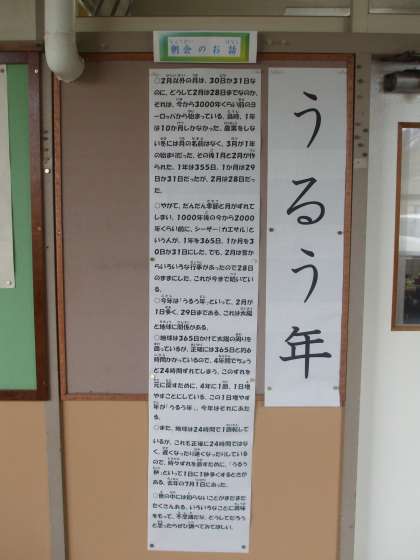 朝会のお話
うるう年
○2月以外の月は、30日か31日な
のに、どうして2月は28日までなのか。
それは、今から3000年くらい前のヨ
ーロッパから始まっている。当時、1年
は10か月しかなかった。農業をしな
い冬には月の名前はなく、3月が1年
の始まりだった。その後1月と2月が作
られた。1年は355日、1か月は29
日か31日だったが、2月は28日だっ
た。
○やがて、だんだん季節と月がずれて
しまい、1000年後の今から2000
年くらい前に、シーザー(カエサル)と
いう人が、1年を365日、1か月を3
0日か31日にした。でも、2月は昔か
らいろいろな行事があったので28日
のままにした。これが今まで続いてい
る。
○今年は「うるう年」といって、2月が
1日多く、29日まである。これは太陽
と地球に関係がある。
○地球は365日かけて太陽の周りを
回っているが、正確には365日と約6
時間かかっているので、4年間でちょう
ど24時間ずれてしまう。このずれを
元に戻すために、4年に1回、1日増
やすことにしている。この1日増やす
年が「うるう年」。今年はそれにあた
る。
○また、地球は24時間で1回転して
いるが、これも正確に24時間ではな
く、遅くなったり速くなったりしている
ので、時々ずれを直すために、「うるう
秒」といって1日に1秒多くするときが
ある。去年の7月1日にあった。
○世の中には知らないことがまだまだ
たくさんある。いろいろなことに興味
をもって、不思議だな、どうしてだろう
と思ったらぜひ調べてみてほしい。